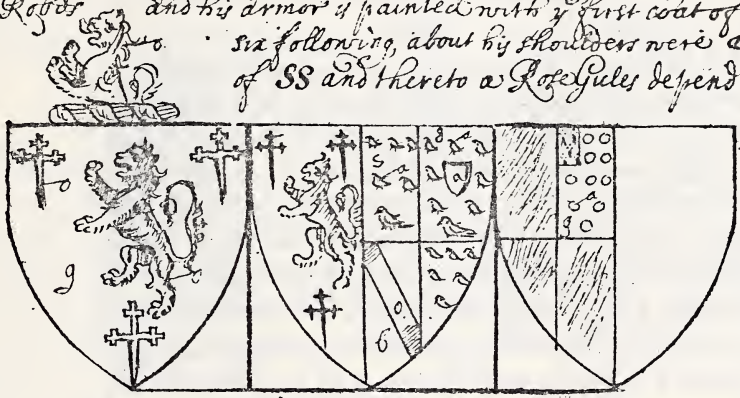 and his armor is painted with yͤ first coat of
six following, about his shoulders were a
of SS and thereto a Rose Gules depend
o
o
g
g
S
a
a
o
6
a
g